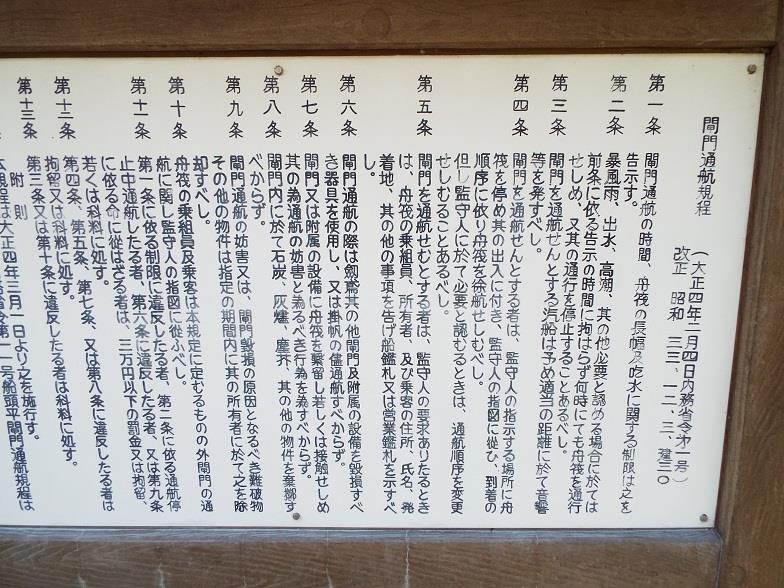 閘門通航規程
(大正四年二月四日内務省令第一号)
改正 昭和 三三、一二、三、建三〇
第一条 閘門通航の時間、舟筏の長幅及吃水に関する制限は之を
告示す。
第二条 暴風雨、出水、高潮、其の他必要と認める場合に於ては
前条に依る告示の時間に拘はらず何時にても舟筏を通行
せしめ、又其の通行を停止することあるべし。
第三条 閘門を通航せんとする汽船は予め適当の距離に於て音響
等を発すべし。
第四条 閘門を通航せんとする者は、監守人の指示する場所に舟
筏を停め其の出入に付き、監守人の指図に従ひ、到着の
順序に依り舟筏を徐航せしむべし。
但し監守人に於て必要と認むるときは、通航順序を変更
せしむることあるべし。
第五条 閘門を通航せむとする者は、監守人の要求ありたるとき
は、舟筏の乗組員、所有者、及び乗客の住所、氏名、発
着地、其の他の事項を告げ船鑑札又は営業鑑札を示すべ
し。
第六条 閘門通航の際は釼鳶其の他閘門及附属の設備を毀損すべ
き器具を使用し、又は掛帆の儘通航すべからず。
第七条 閘門又は附属の設備に舟筏を繋留し若しくは接触せしめ
其の為通航の妨害と為るべき行為を為すべからず。
第八条 閘門内に於て石炭、灰燼、塵芥、其の他の物件を棄擲す
べからず。
第九条 閘門通航の妨害又は、閘門毀損の原因となるべき難破物
その他の物件は指定の期間内に其の所有者に於て之を除
却すべし。
第十条 舟筏の乗組員及乗客は本規定に定むるものの外閘門の通
航に関し監守人の指図に従ふべし。
第十一条 第一条に依る制限に違反したる者、第二条に依る通航停
止中通航したる者、第六条に違反したる者、又は第九条
に依る命に従はざる者は、三万円以下の罰金又は拘留、
若くは科料に処す。
第十二条 第四条、第五条、第七条、又は第八条に違反したる者は
拘留又は科料に処す。
第十三条 第三条又は第十条に違反したる者は科料に処す。
附 則
本規程は大正四年三月一日より之を施行す。
省令第一一号船頭平閘門通航規程は